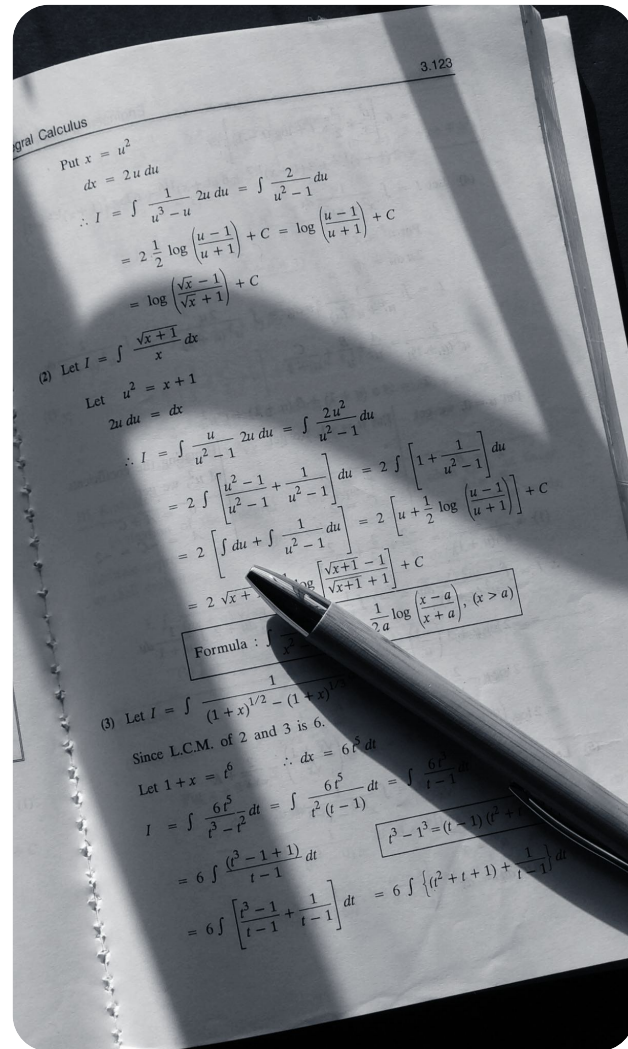 3.123
gral Calculus
Put x = u²
dx = 2u du
∴ I = ∫ 1/(u³ − u) 2u du = ∫ 2/(u² − 1) du
= 2 1/2 log ((u − 1)/(u + 1)) + C = log ((u − 1)/(u + 1)) + C
= log ((√x − 1)/(√x + 1)) + C
(2) Let I = ∫ √(x + 1)/x dx
Let u² = x + 1
2u du = dx
∴ I = ∫ u/(u² − 1) 2u du = ∫ 2u²/(u² − 1) du
= 2 ∫ [(u² − 1)/(u² − 1) + 1/(u² − 1)] du = 2 ∫ [1 + 1/(u² − 1)] du
= 2 [∫ du + ∫ 1/(u² − 1) du] = 2 [u + 1/2 log ((u − 1)/(u + 1))] + C
= 2 √x + log [(√(x+1) − 1)/(√(x+1) + 1)] + C
Formula : ∫ 1/2a log ((x − a)/(x + a)), (x > a)
(3) Let I = ∫ 1/((1 + x)^1/2 − (1 + x)^1/3
Since L.C.M. of 2 and 3 is 6.
Let 1 + x = t⁶ ∴ dx = 6t⁵ dt
I = ∫ 6t⁵/(t³ − t²) dt = ∫ 6t⁵/(t² (t − 1)) dt = ∫ 6t³/(t − 1) dt
= 6 ∫ (t³ − 1 + 1)/(t − 1) dt
t³ − 1³ = (t − 1) (t² +
= 6 ∫ [(t³ − 1)/(t − 1) + 1/(t − 1)] dt = 6 ∫ {(t² + t + 1) + 1/(t − 1)} dt